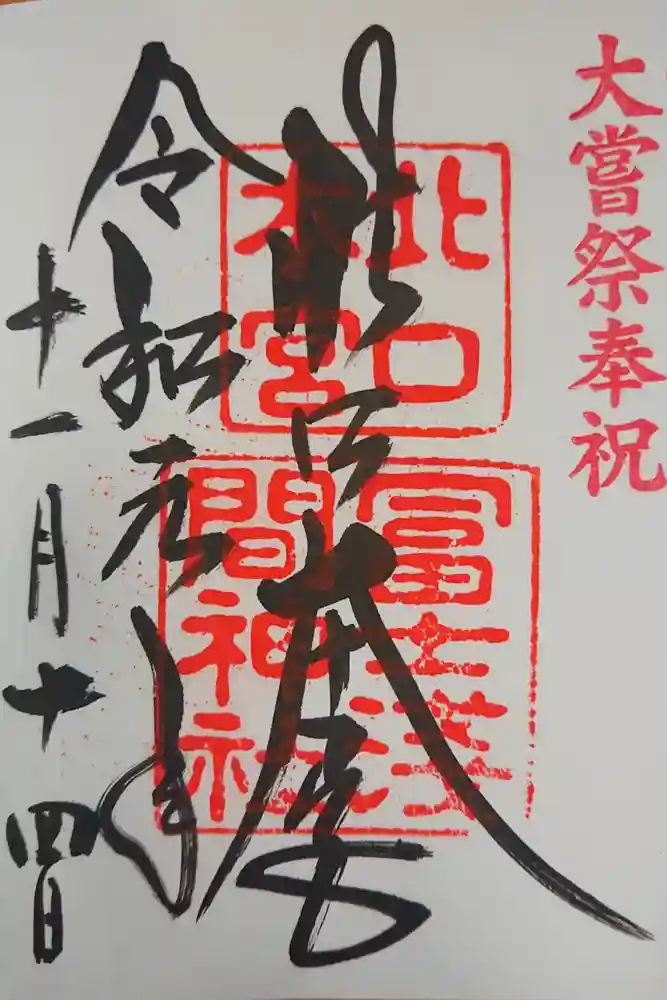 大嘗祭奉祝
北口本宮
北口
本宮
冨士淺
間神社
令和元年
十一月十四日